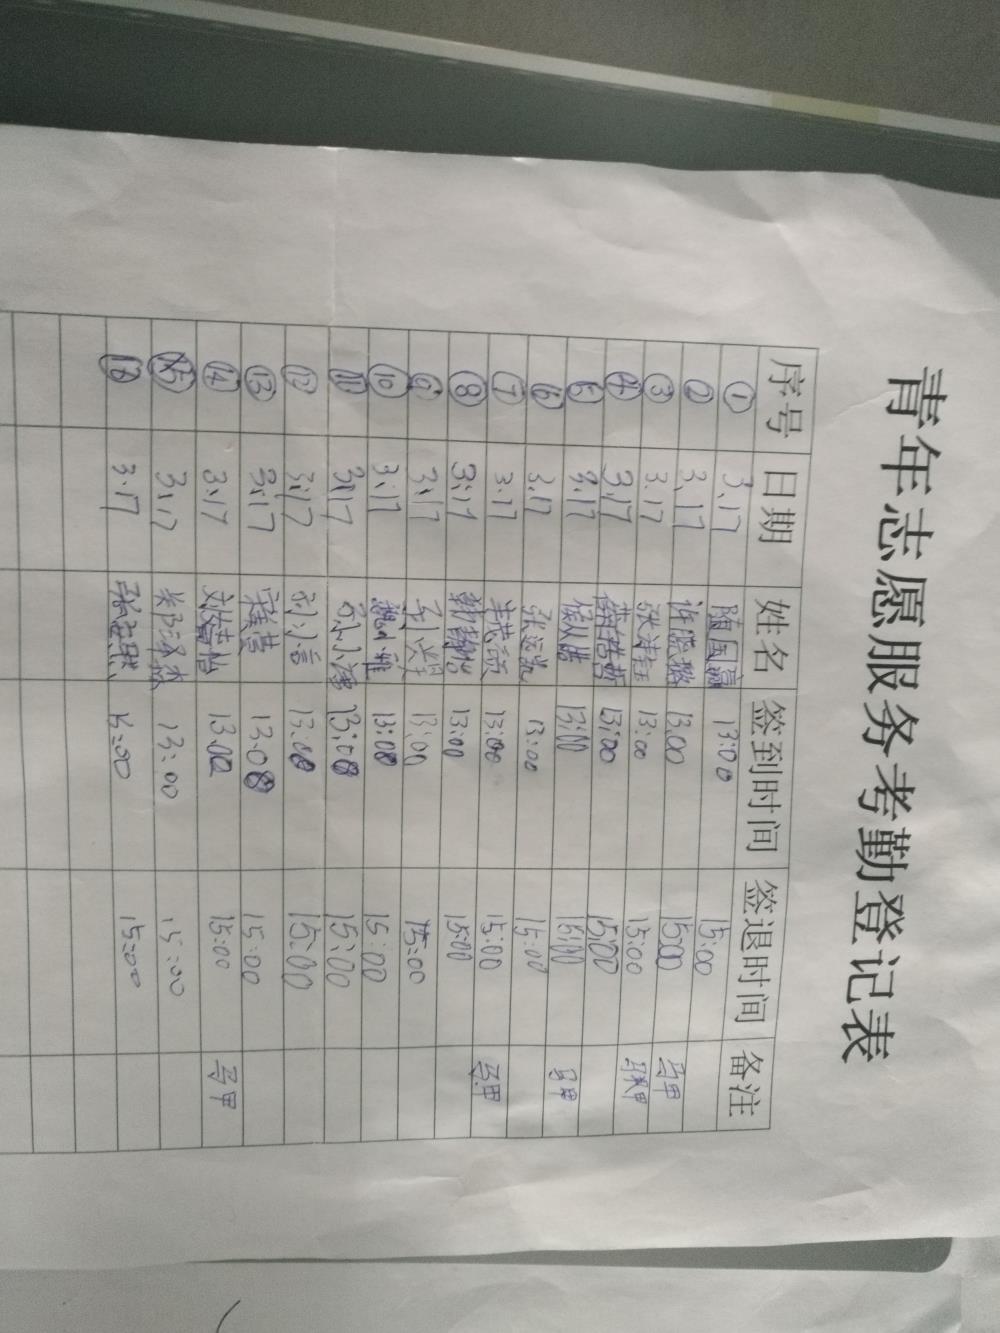 青年志愿服务考勤登记表
序号 日期 姓名 签到时间 签退时间 备注
① 3.17 随国赢 13:00 15:00
② 3.17 许晓璐 13:00 15:00 马甲
③ 3.17 张涛钰 13:00 15:00 马甲
④ 3.17 13:00 15:00
⑤ 3.17 13:00 15:00 马甲
⑥ 3.17 张运凯 13:00 15:00
⑦ 3.17 13:00 15:00 马甲
⑧ 3.17 13:00 15:00
⑨ 3.17 13:00 15:00
⑩ 3.17 魏小雅 13:00 15:00
⑪ 3.17 13:00 15:00
⑫ 3.17 13:00 15:00
⑬ 3.17 13:00 15:00
⑭ 3.17 刘婧怡 13:00 15:00 马甲
⑮ 3.17 13:00 15:00
⑯ 3.17 15:00